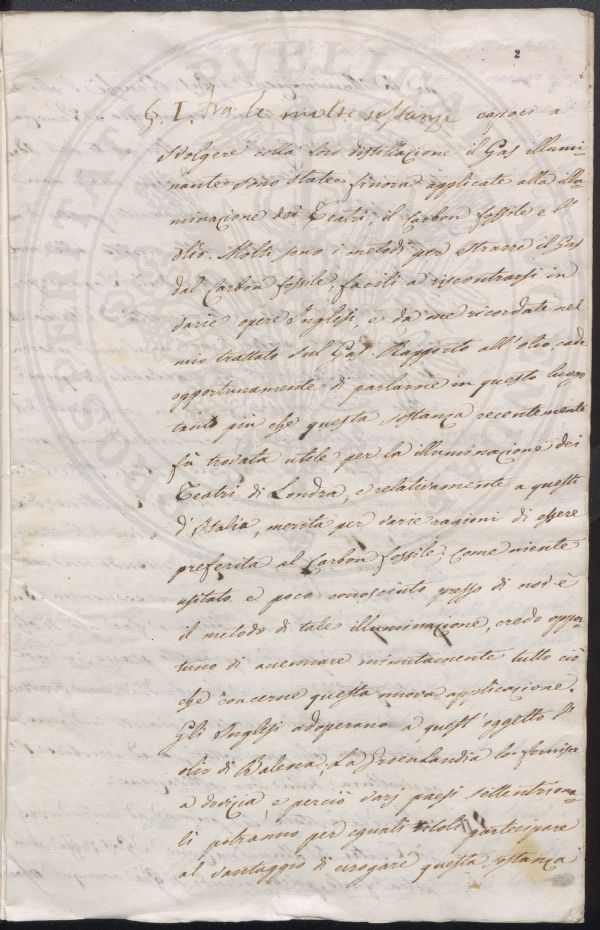 2
§. I. Fra le molte sostanze capaci a
svolgere colla loro distillazione il Gas illumi-
nante sono state finora applicate alla illu-
minazione dei Teatri, il Carbon fossile e l'
olio. Molti sono i metodi per estrarre il Gas
dal Carbon fossile, facili a riscontrarsi in
varie opere Inglesi, e da me ricordate nel
mio trattato sul Gas. Rapporto all'olio, cade
opportunamente di parlarne in questo luogo
tanto più che questa sostanza recentemente
fù trovata utile per la illuminazione dei
Teatri di Londra, e relativamente a quelli
d'Italia, merita per varie ragioni di essere
preferita al Carbon fossile; come niente
usitato e poco conosciuto presso di noi è
il metodo di tale illuminazione, credo oppor-
tuno di accennare minutamente tutto ciò
che concerne questa nuova applicazione.
Gli Inglesi adoperano a quest'oggetto l'
olio di Balena; la Groenlandia lo fornisce
a dovizia, e perciò varj paesi settentriona-
li potranno per eguali titoli partecipare
al vantaggio di erogare questa sostanza
PROSPERITATI PUBLICAE